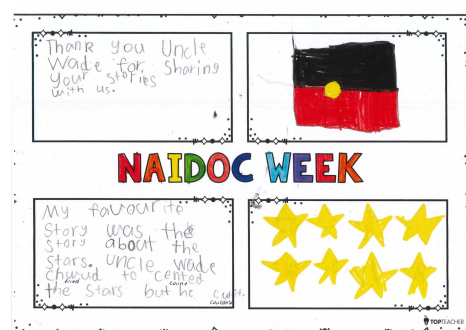 Thank you Uncle
Wade for sharing
your stories
with us.
NAIDOC WEEK
My favourite
story was the
story about the
stars. Uncle Wade
tried
to
the stars but he
TOPTEACHER